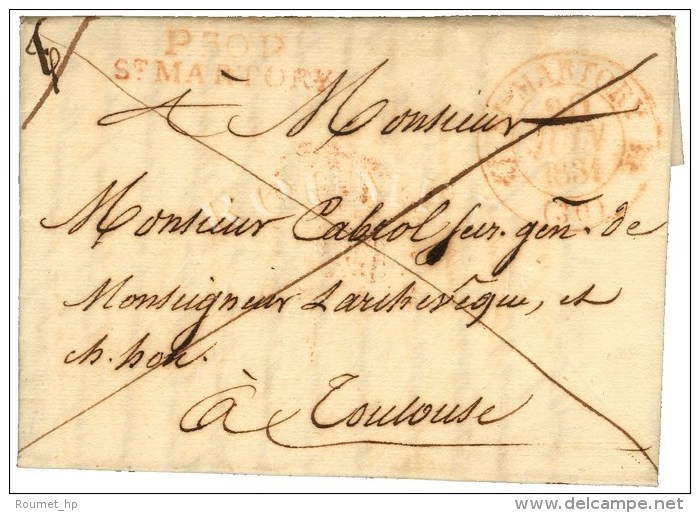 P30P
ST MARTORY
ST MARTORY
JUIN
1831
(30)
à Monsieur
Monsieur Cabrol sec. gén. de
Monseigneur Larchevêque, et
ch. hon.
à Toulouse
Roumet_hp
delcampe.net